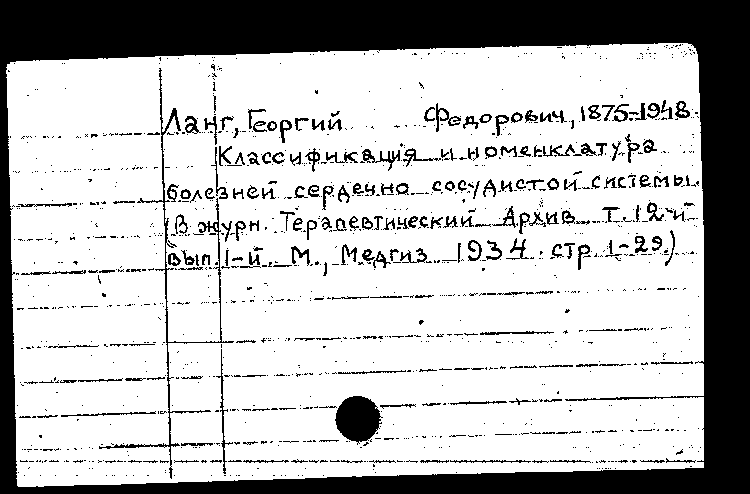 Ланг, Георгий Федорович, 1875-1948.
Классификация и номенклатура
болезней сердечно сосудистой системы.
(В журн. Терапевтический Архив Т. 12-й
вып. 1-й. М., Медгиз 1934. стр. 1-29.)